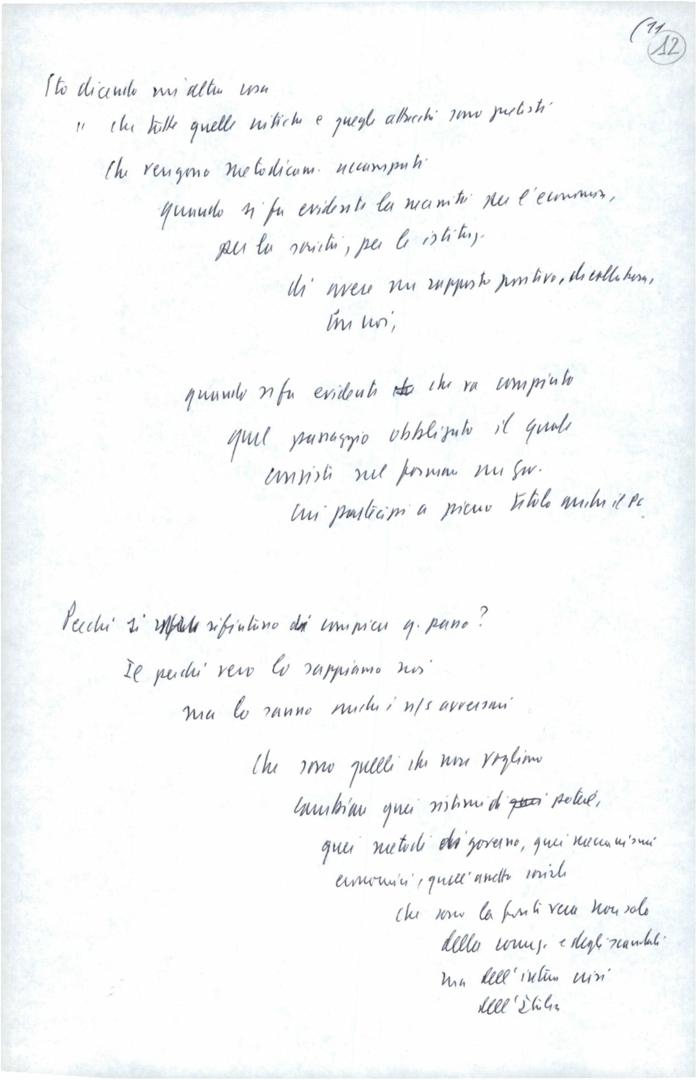 (11
12
Sto dicendo un'altra cosa
" che tutte quelle critiche e quegli attacchi sono pretesti
che vengono metodicam. accampati
quando si fa evidente la necessità per l'economia,
per la società, per le istituz.
di avere un rapporto positivo, di collaboraz,
con noi,
quando si fa evidente che va compiuto
quel passaggio obbligato il quale
consiste nel formare un gov.
cui partecipi a pieno titolo anche il PC
Perché si rifiutano di compiere q. passo?
Il perché vero lo sappiamo noi
ma lo sanno anche i n/s avversari
che sono quelli che non vogliono
cambiare quei sistemi di potere,
quei metodi di governo, quei meccanismi
economici, quell'assetto sociale
che sono la fonte vera non solo
della corruz. e degli scandali
ma dell'intera crisi
dell'Italia